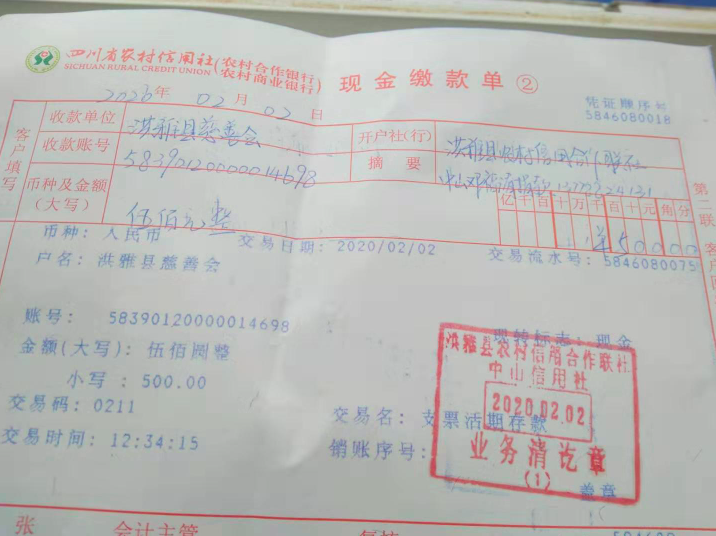 四川省农村信用社(农村合作银行 农村商业银行) 现金缴款单②
SICHUAN RURAL CREDIT UNION
2020年 02月 02日
凭证顺序号
5846080018
客户填写
收款单位 洪雅县慈善会 开户社(行) 洪雅县农村信用合作联社
收款账号 583901200000014698 摘要
币种及金额(大写) 伍佰元整 亿千百十万千百十元角分
¥50000
第二联 客户
币种: 人民币 交易日期: 2020/02/02 交易流水号: 5846080075
户名: 洪雅县慈善会
账号: 58390120000014698
现转标志: 现金
金额(大写): 伍佰圆整
小写: 500.00
交易码: 0211 交易名: 支票活期存款
交易时间: 12:34:15 销账序号:
洪雅县农村信用合作联社
中山信用社
2020.02.02
业务清讫章
(1)
盖章
张 会计主管 复核